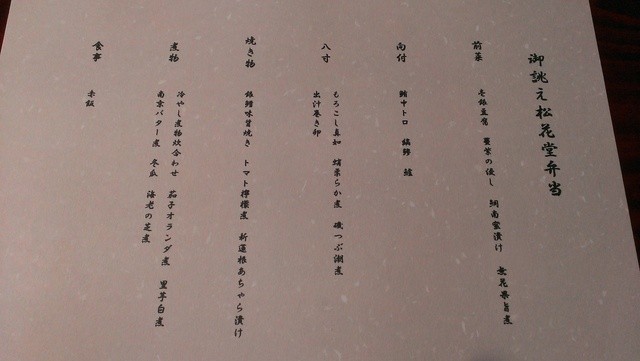 御誂え松花堂弁当
前菜
壱銀豆腐 蔓紫の浸し 絹南蛮漬け 無花果旨煮
向付
鮪中トロ 縞鯵 鱧
八寸
もろこし真如 蛸柔らか煮 磯つぶ潮煮
出汁巻き卵
焼き物
銀鱈味噌焼き トマト檸檬煮 新蓮根あちゃら漬け
煮物
冷やし煮物炊合わせ 茄子オランダ煮 里芋白煮
南京バター煮 冬瓜 海老の芝煮
食事
赤飯